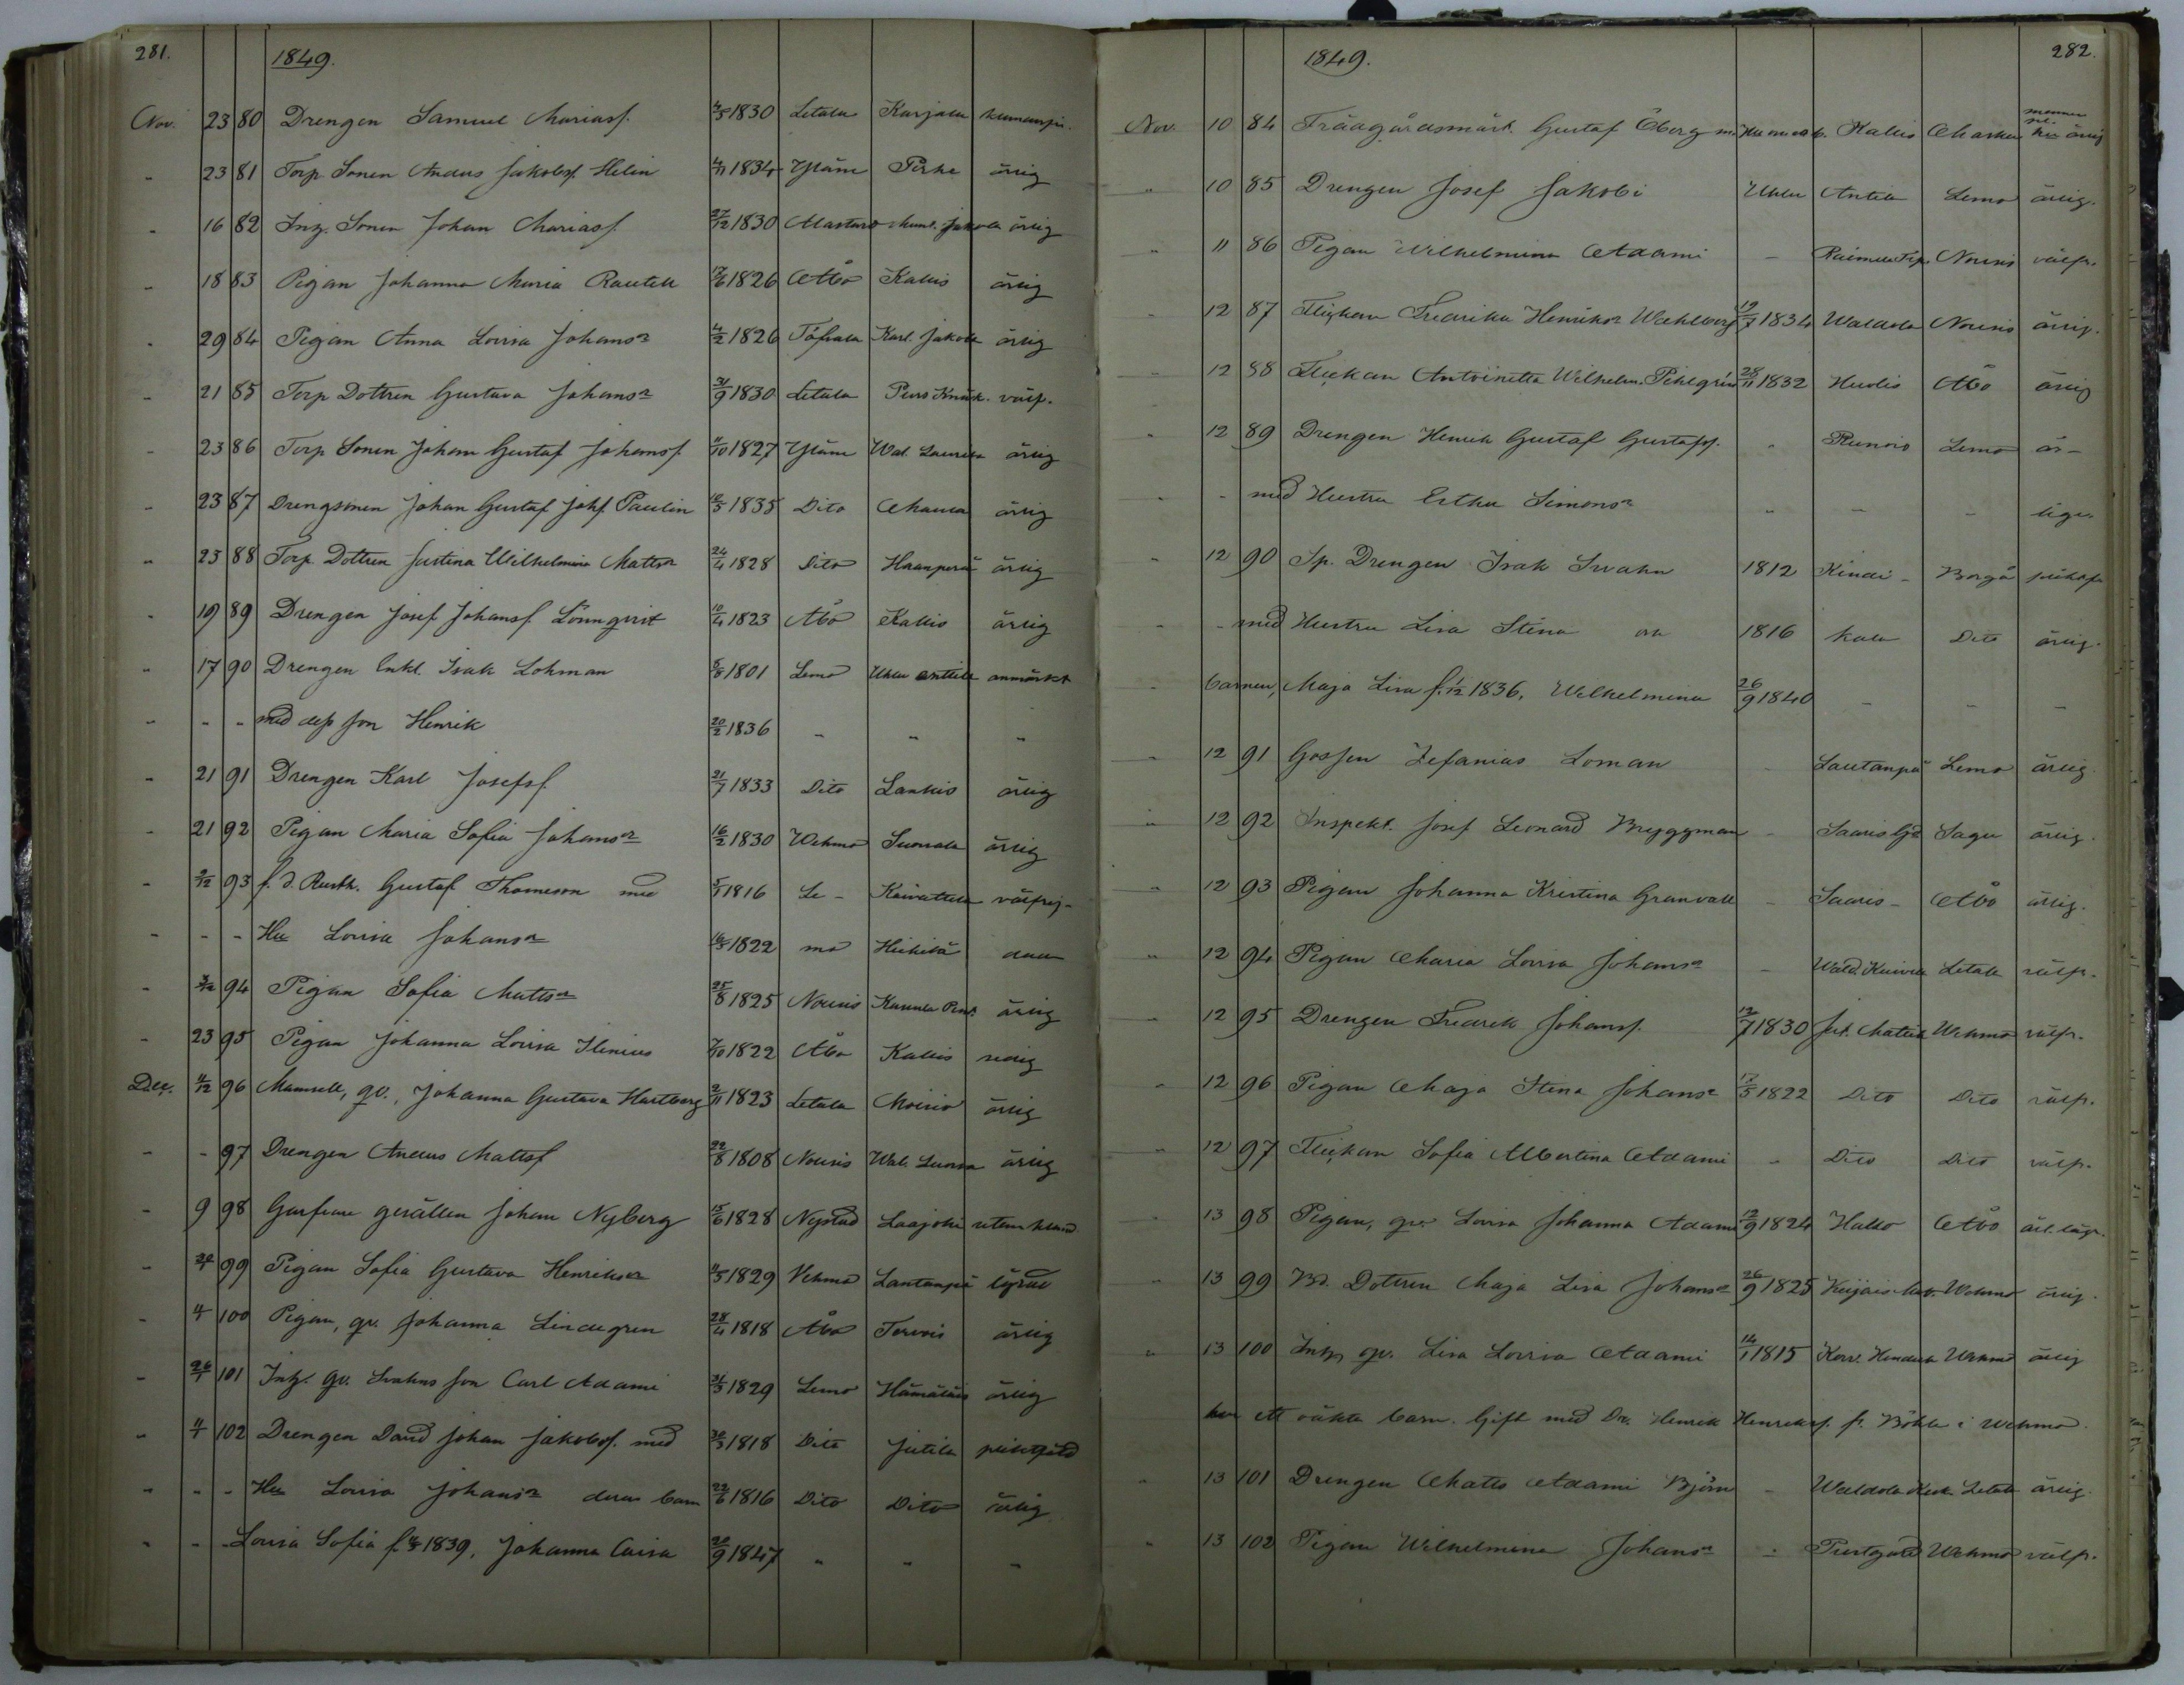 281.
1849.
Nov. 23 80 Drengen Samuel Mariasf. 1830 Letala Karjala
" 23 81 Torp Sonen Anders Jakobsf. Helin 1834 Yläne Pirke ärlig
" 16 82 Inh. Sonen Johan Mariasf. 27/12 1830 Masku ärlig
" 18 83 Pigan Johanna Maria Rautell 1826 Åbo Kallis ärlig
" 29 84 Pigan Anna Lovisa Johansr 4/2 1826 Töfsala Karl. Jakola ärlig
" 21 85 Torp Dottren Gustava Johansr 21/9 1830 Letala välfr.
" 23 86 Torp Sonen Johan Gustaf Johansf. 4/10 1827 Yläne Wal. Laurila ärlig
" 23 87 Drengsonen Johan Gustaf Johf. Paulin 1835 Dito ärlig
" 23 88 Torp Dottren Justina Wilhelmina Mattsr 24/4 1828 Dito Haanperä ärlig
" 19 89 Drengen Josef Johansf Lönnqvist 10/4 1823 Åbo Kallis ärlig
" 17 90 Drengen Enkl. Isak Lohman 1801 Lemo Uhlu anttila anmärkt
" " " med dess son Henrik 20/2 1836 " " "
" 21 91 Drengen Karl Josefsf. 21/7 1833 Dito Lankis ärlig
" 21 92 Pigan Maria Sofia Johansr 16/2 1830 Wehmo Suonala ärlig
" 3/12 93 f. d. Rusth. Gustaf Thomeson med 1816 Le- Kaivattila välfrej-
" " " Hu Lovisa Johansr 1822 mo Heikilä dad
" 94 Pigan Sofia Mattsr 25/8 1825 Nousis ärlig
" 23 95 Pigan Johanna Lovisa Ilenius 7/10 1822 Åbo Kallis redig
Dec. 4/12 96 Mamsell, qv., Johanna Gustava Hartberg 2/11 1823 Letala Moisio ärlig
" " 97 Drengen Anders Mattsf 22/8 1808 Nousis ärlig
" 9 98 Garfvare gesällen Johan Nyberg 15/6 1828 Nystad Laajoki utan kland
" 99 Pigan Sofia Gustava Henriksr 1829 Vehmo Lautanpä
" 4 100 Pigan, qv. Johanna Lindegren 28/4 1818 Åbo Tervois ärlig
" 26/1 101 Inh. qv. Svahns son Carl Adami 31/3 1829 Lemo Hämäläis ärlig
" 102 Drengen David Johan Jakobsf. med 1818 Dito Jutila
" " " Hu Lovisa Johansr deras barn 22/6 1816 Dito Dito ärlig
" " " Lovisa Sofia f. 1839, Johanna Caisa 20/9 1847 " " "
1849.
282.
Nov. 10 84 Trädgårdsmäst. Gustaf Öberg m. Kallis
" 10 85 Drengen Josef Jakobi Uhlu Antila Lemo ärlig.
" 11 86 Pigan Wilhelmina Adami – Nousis välfr.
" 12 87 Flickan Fredrika Henriksr Wahlberg 19/7 1834 Waldola Nousis ärlig.
" 12 88 Flickan Antoinetta Wilhelm. Pihlgrén 28/11 1832 Huolis Åbo ärlig
" 12 89 Drengen Henrik Gustaf Gustafsf. " Runois Lemo är-
" " med Hustru Esther Simonsr " " " liga
" 12 90 Sp. Drengen Isak Svahn 1812 Kinai- Borgå
" " med Hustru Lisa Stina och 1816 kala Dito ärlig.
" barnen, Maja Lisa f. 1/12 1836, Wilhelmina 26/9 1840 – – –
" 12 91 Gossen Zefanias Loman Lautanpä Lemo ärlig
" 12 92 Inspekt. Josef Leonard Bryggman – Saaris Sagu ärlig.
" 12 93 Pigan Johanna Kristina Granvall – Saaris – Åbo ärlig.
" 12 94 Pigan Maria Lovisa Johansr – Letala välfr.
" 12 95 Drengen Fredrik Johansf. 12/7 1830 Wehmo välfr.
" 12 96 Pigan Maja Stina Johansr 17/5 1822 Dito Dito välfr.
" 12 97 Flickan Sofia Albertina Adami – Dito Dito välfr.
" 13 98 Pigan, qv. Lovisa Johanna Adami 12/9 1824 Hallo Åbo
" 13 99 Bd. Dottren Maja Lisa Johansr 26/9 1825 Wehmo ärlig.
" 13 100 Inh. qv. Lisa Lovisa Adami 14/1 1815 Wehmo ärlig
har ett oäkta barn. Gift med Dr. Henrik Henriksf. fr. Böhle i Wehmo.
" 13 101 Drengen Matts Adami Björn – Waldola Letala ärlig.
" 13 102 Pigan Wilhelmina Johansr – Prestgård Wehmo välfr.